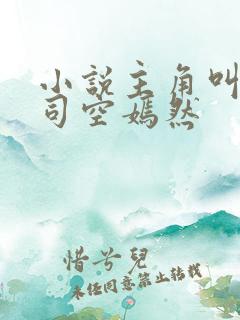 小说主角叫
司空嫣然
惜兮兒
未经同意禁止转载